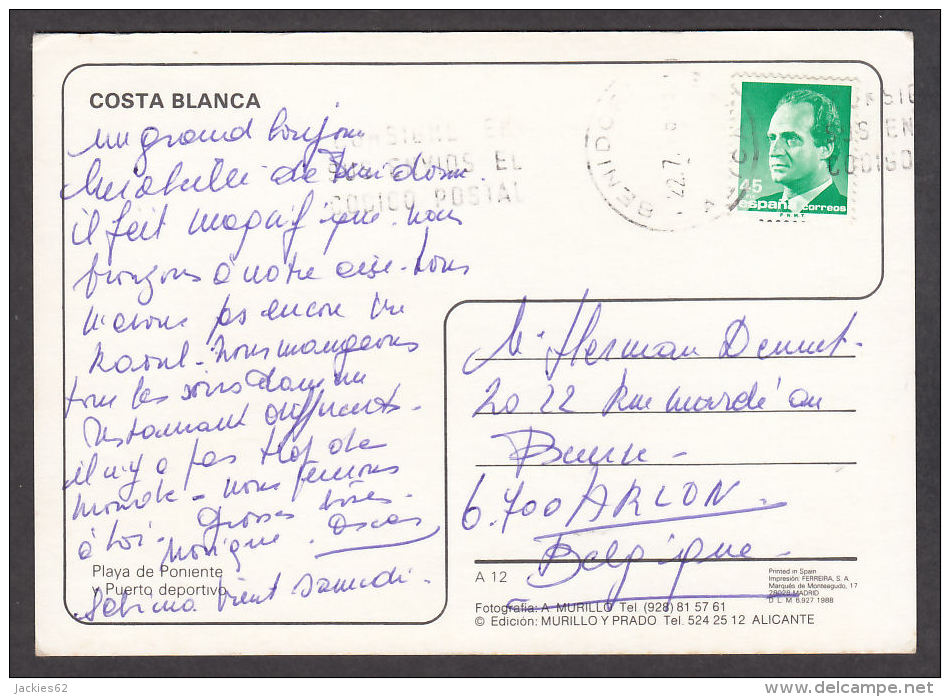 COSTA BLANCA
un grand bonjour
de Benidorm.
il fait magnifique nous
bronzons à notre aise - nous
n'avons pas encore vu
Raoul - Nous mangeons
tous les soirs dans un
restaurant différents -
il n'y a pas trop de
monde - nous pensons
à toi - Grosses bises -
Monique. Oscar
Sabrina vient samedi -
Playa de Poniente
y Puerto deportivo
CONSIGNE EN
SUS ENVIOS EL
CODIGO POSTAL
BENIDO
22.7.
45
españa correos
F.N.M.T.
CONSIG
SUS EN
CODIGO
Mr Herman Demut -
20 22 Rue marché au
Beurre -
6.700 ARLON -
Belgique -
A 12
Printed in Spain
Impresión: FERREIRA, S. A.
Marqués de Monteagudo, 17
28028 MADRID
D. L. M. 8.927 1988
Fotografía: A. MURILLO Tel. (928) 81 57 61
© Edición: MURILLO Y PRADO Tel. 524 25 12 ALICANTE
jackies62